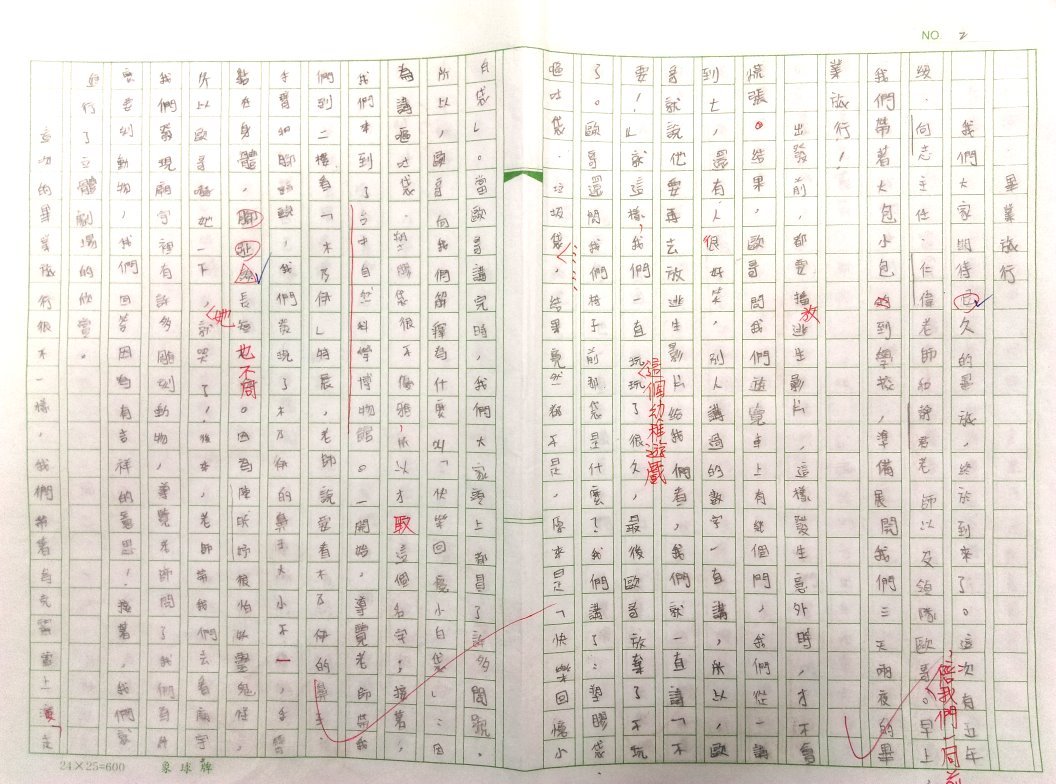 NO. 2
畢業旅行
我們大家期待已久的畢旅,終於到來了。這次有五年
級.向志主任.仁偉老師和靜君老師以及領隊歐哥。早上
陪我們一同前
我們帶著大包小包的到學校,準備展開我們三天兩夜的畢
業旅行!
出發前,都要播放逃生影片,這樣發生意外時,才不會
慌張。結果,歐哥問我們遊覽車上有幾個門,我們從一講
到七,還有人很好笑,別人講過的數字一直講,所以,歐
哥就說他要再去放逃生影片給我們看,我們就一直講「不
要!」就這樣,我們一直玩玩了很久,最後歐哥放棄了不玩
這個幼稚遊戲
了。歐哥還問我們椅子前那袋是什麼?我們講了:塑膠袋.
嘔吐袋.垃圾袋,結果竟然都不是,原來是「快樂回憶小
白袋」。當歐哥講完時,我們大家頭上都冒了許多問號。
所以,歐哥向我們解釋為什麼叫「快樂回憶小白袋」:因
為講嘔吐袋.塑膠袋很不優雅,所以才取這個名字;接著,
我們來到了台中自然科學博物館。一開始,導覽老師帶我
們到二樓看「木乃伊」特展,老師說要看木乃伊的鼻子.
手臂和腳趾,我們發現了木乃伊的鼻子大小不一,手臂
黏在身體,腳趾長短也不同。因為陳映妤很怕幽靈鬼怪,
所以歐哥嚇她一下,她就哭了!後來,老師帶我們去看廟宇,
我們發現廟宇裡有許多雕刻動物,導覽老師問了我們為什
麼要刻動物,我們回答因為有吉祥的意思!接著,我們就
進行了立體劇場的欣賞。
這次的畢業旅行很不一樣,我們帶著上演「走
24×25=600 象球牌